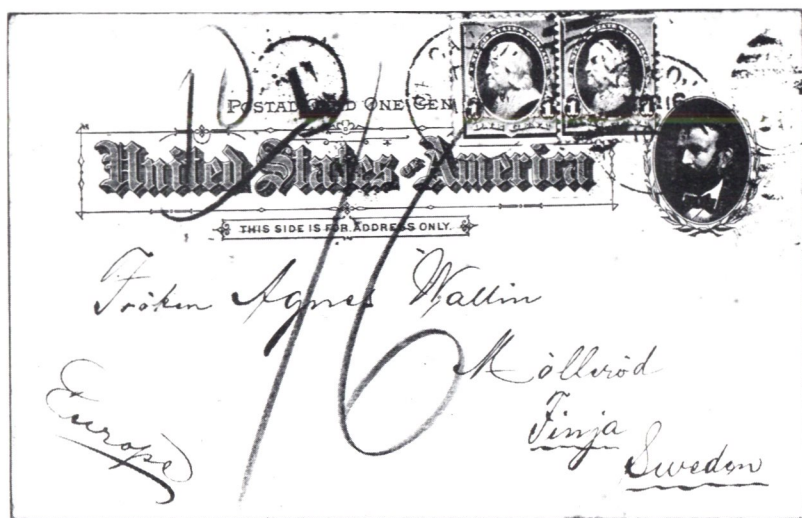 POSTAL CARD ONE CEN
United States of America
THIS SIDE IS FOR ADDRESS ONLY.
16
Fröken Agnes Wallin
Mölleröd
Finja
Sweden
Europe